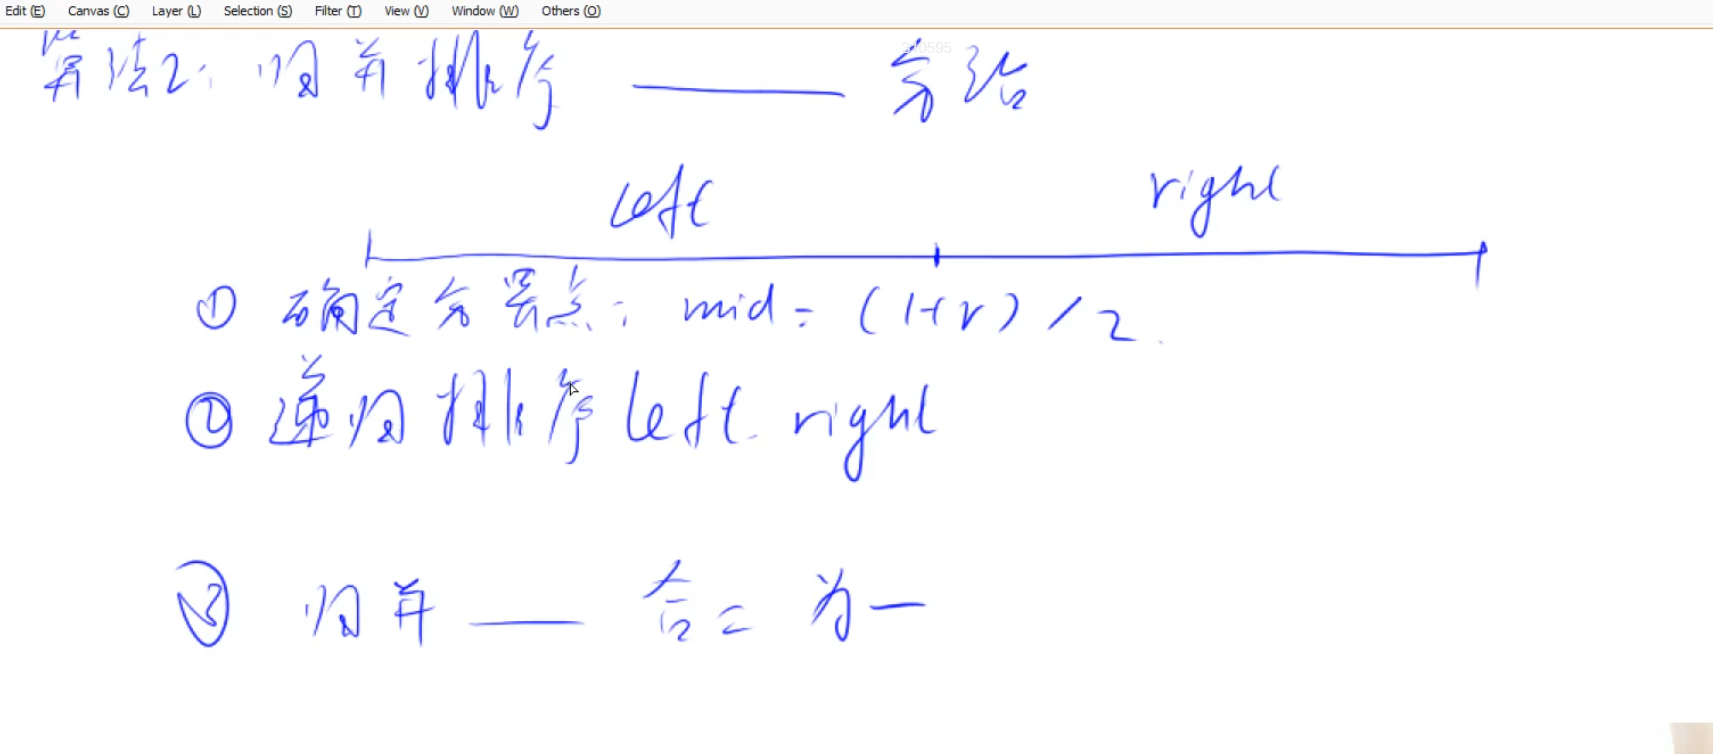 Edit (E) Canvas (C) Layer (L) Selection (S) Filter (T) View (V) Window (W) Others (O)
算法2: 归并排序 —— 分治
left right
① 确定分界点: mid = (l+r)/2.
② 递归排序 left. right
③ 归并 —— 合二为一